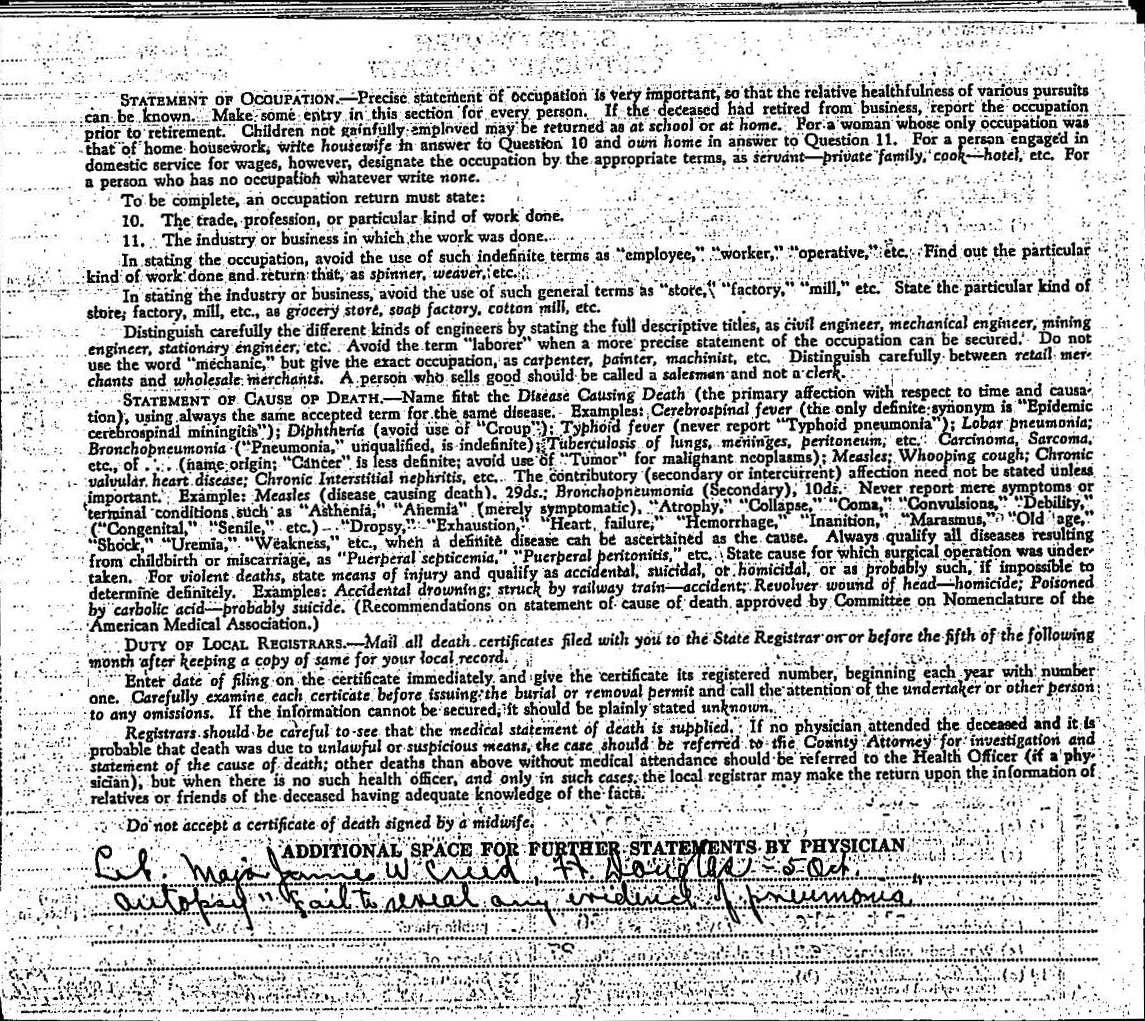 STATEMENT OF OCCUPATION.—Precise statement of occupation is very important, so that the relative healthfulness of various pursuits
can be known. Make some entry in this section for every person. If the deceased had retired from business, report the occupation
prior to retirement. Children not gainfully employed may be returned as at school or at home. For a woman whose only occupation was
that of home housework, write housewife in answer to Question 10 and own home in answer to Question 11. For a person engaged in
domestic service for wages, however, designate the occupation by the appropriate terms, as servant—private family, cook—hotel, etc. For
a person who has no occupation whatever write none.
To be complete, an occupation return must state:
10. The trade, profession, or particular kind of work done.
11. The industry or business in which the work was done.
In stating the occupation, avoid the use of such indefinite terms as "employee," "worker," "operative," etc. Find out the particular
kind of work done and return that, as spinner, weaver, etc.
In stating the industry or business, avoid the use of such general terms as "store," "factory," "mill," etc. State the particular kind of
store, factory, mill, etc., as grocery store, soap factory, cotton mill, etc.
Distinguish carefully the different kinds of engineers by stating the full descriptive titles, as civil engineer, mechanical engineer, mining
engineer, stationary engineer, etc. Avoid the term "laborer" when a more precise statement of the occupation can be secured. Do not
use the word "mechanic," but give the exact occupation, as carpenter, painter, machinist, etc. Distinguish carefully between retail mer-
chants and wholesale merchants. A person who sells good should be called a salesman and not a clerk.
STATEMENT OF CAUSE OF DEATH.—Name first the Disease Causing Death (the primary affection with respect to time and causa-
tion), using always the same accepted term for the same disease. Examples: Cerebrospinal fever (the only definite synonym is "Epidemic
cerebrospinal miningitis"); Diphtheria (avoid use of "Croup"); Typhoid fever (never report "Typhoid pneumonia"); Lobar pneumonia;
Bronchopneumonia ("Pneumonia," unqualified, is indefinite); Tuberculosis of lungs, meninges, peritoneum, etc. Carcinoma, Sarcoma,
etc., of . . . (name origin; "Cancer" is less definite; avoid use of "Tumor" for malignant neoplasms); Measles; Whooping cough; Chronic
valvular heart disease; Chronic Interstitial nephritis, etc. The contributory (secondary or intercurrent) affection need not be stated unless
important. Example: Measles (disease causing death), 29ds.; Bronchopneumonia (Secondary), 10ds. Never report mere symptoms or
terminal conditions such as "Asthenia," "Anemia" (merely symptomatic), "Atrophy," "Collapse," "Coma," "Convulsions," "Debility,"
("Congenital," "Senile," etc.) "Dropsy," "Exhaustion," "Heart failure," "Hemorrhage," "Inanition," "Marasmus," "Old age,"
"Shock," "Uremia," "Weakness," etc., when a definite disease can be ascertained as the cause. Always qualify all diseases resulting
from childbirth or miscarriage, as "Puerperal septicemia," "Puerperal peritonitis," etc. State cause for which surgical operation was under-
taken. For violent deaths, state means of injury and qualify as accidental, suicidal, or homicidal, or as probably such, if impossible to
determine definitely. Examples: Accidental drowning; struck by railway train—accident; Revolver wound of head—homicide; Poisoned
by carbolic acid—probably suicide. (Recommendations on statement of cause of death approved by Committee on Nomenclature of the
American Medical Association.)
DUTY OF LOCAL REGISTRARS.—Mail all death certificates filed with you to the State Registrar on or before the fifth of the following
month after keeping a copy of same for your local record.
Enter date of filing on the certificate immediately and give the certificate its registered number, beginning each year with number
one. Carefully examine each certicate before issuing the burial or removal permit and call the attention of the undertaker or other person
to any omissions. If the information cannot be secured, it should be plainly stated unknown.
Registrars should be careful to see that the medical statement of death is supplied. If no physician attended the deceased and it is
probable that death was due to unlawful or suspicious means, the case should be referred to the County Attorney for investigation and
statement of the cause of death; other deaths than above without medical attendance should be referred to the Health Officer (if a phy-
sician), but when there is no such health officer, and only in such cases, the local registrar may make the return upon the information of
relatives or friends of the deceased having adequate knowledge of the facts.
Do not accept a certificate of death signed by a midwife.
ADDITIONAL SPACE FOR FURTHER STATEMENTS BY PHYSICIAN
Let. Major James W Creed, Ft. Douglas - 5 Oct.
autopsy "fail to reveal any evidence of pneumonia"